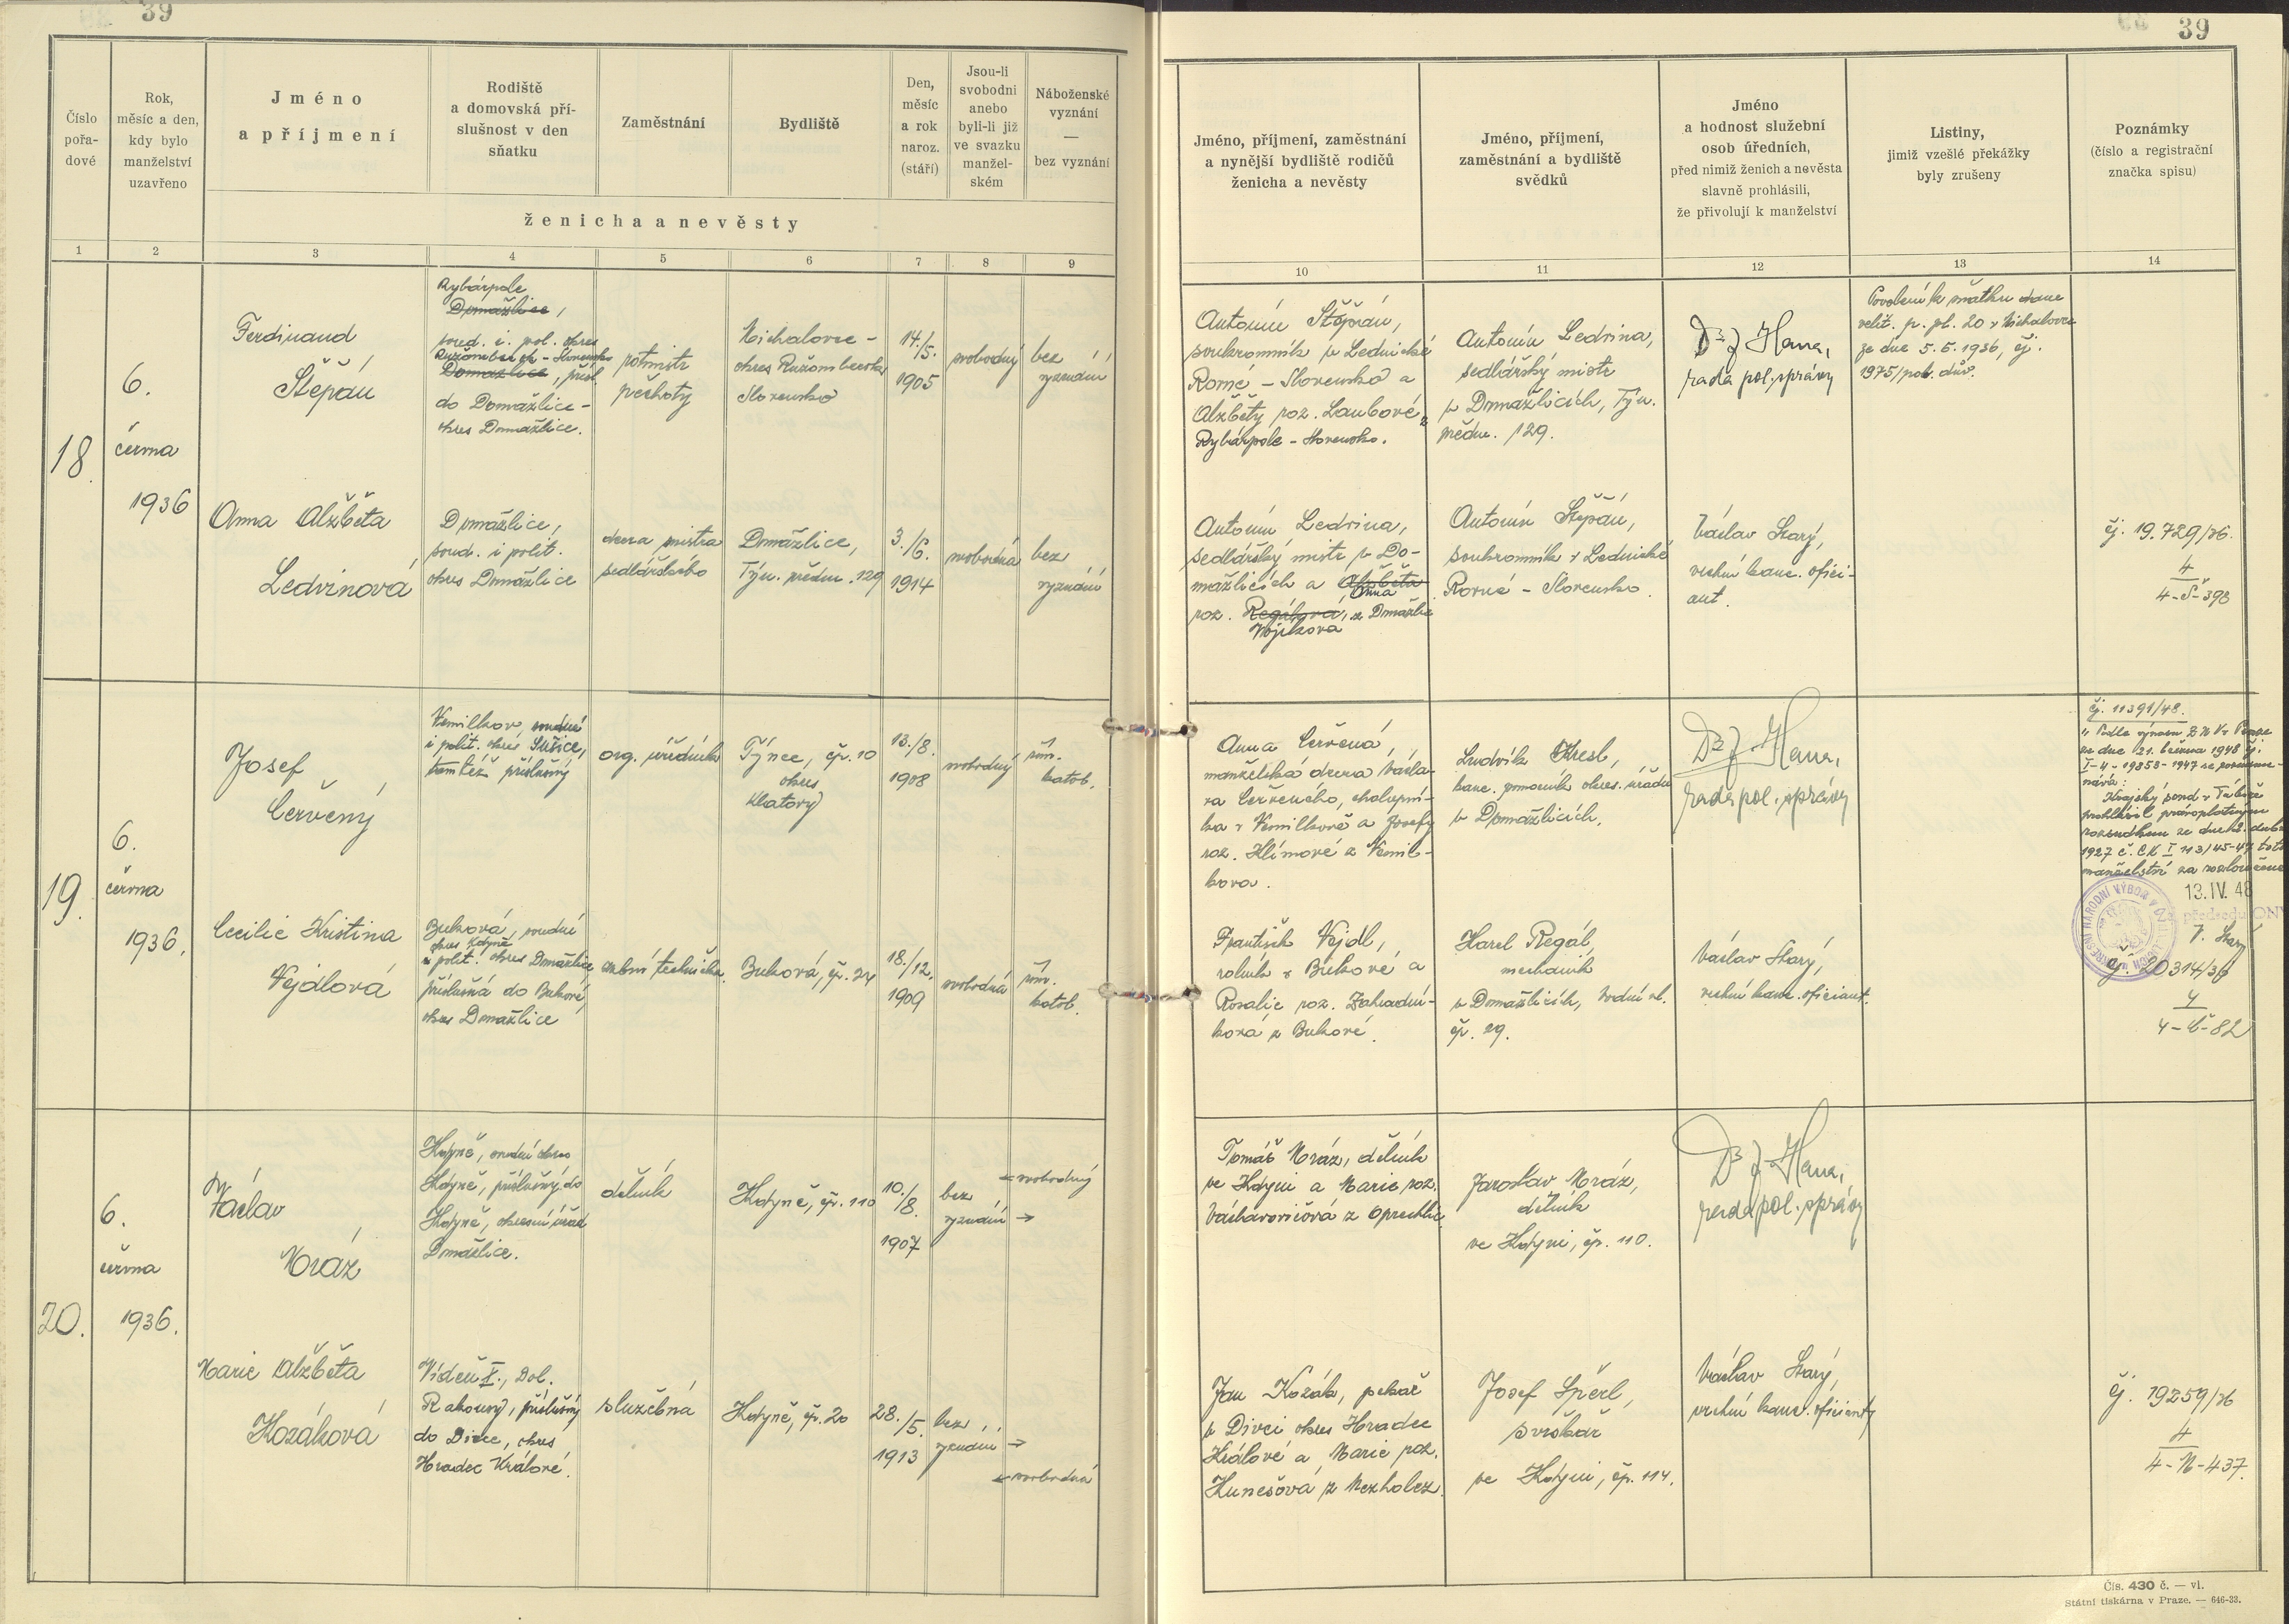 39
39
Číslo
pořa-
dové
Rok,
měsíc a den,
kdy bylo
manželství
uzavřeno
Jméno
a příjmení
Rodiště
a domovská pří-
slušnost v den
sňatku
Zaměstnání
Bydliště
Den,
měsíc
a rok
naroz.
(stáří)
Jsou-li
svobodni
anebo
byli-li již
ve svazku
manžel-
ském
Náboženské
vyznání
—
bez vyznání
ženicha a nevěsty
Jméno, příjmení, zaměstnání
a nynější bydliště rodičů
ženicha a nevěsty
Jméno, příjmení,
zaměstnání a bydliště
svědků
Jméno
a hodnost služební
osob úředních,
před nimiž ženich a nevěsta
slavně prohlásili,
že přivolují k manželství
Listiny,
jimiž vzešlé překážky
byly zrušeny
Poznámky
(číslo a registrační
značka spisu)
1 2 3 4 5 6 7 8 9
10 11 12 13 14
18.
6.
června
1936
Ferdinand
Štěpán
Rybárpole
Domažlice,
soud. i. pol. okres
Ružomberok - Slovensko
Domažlice, přísl.
do Domažlice -
okres Domažlice.
rotmistr
pěchoty
Michalovce -
okres Ružomberok
Slovensko
14./5.
1905
svobodný
bez
vyznání
Antonín Štěpán,
soukromník v Lednické
Rovné - Slovensko a
Alžběty roz. Laubové z
Rybárpole - Slovensko.
Antonín Ledvina,
sedlářský mistr
v Domažlicích, Týn.
předm. 129.
Dr J Hana,
rada pol. správy
Povolení k sňatku dane
velit. p. pl. 20 v Michalovce
ze dne 5.5.1936, čj.
1975/pob. dův.
Anna Alžběta
Ledvinová
Domažlice,
soud. i polit.
okres Domažlice
dcera mistra
sedlářského
Domažlice,
Týn. předm. 129
3./6.
1914
svobodná
bez
vyznání
Antonín Ledvina,
sedlářský mistr v Do-
mažlicích a Alžběta
Anna
roz. Regálová, z Domažlic
Vojtková
Antonín Štěpán,
soukromník v Lednické
Rovné - Slovensko.
Václav Starý,
vrchní kanc. ofici-
ant.
čj. 19.729/36.
4
4-Š-398
19.
6.
června
1936.
Josef
Červený
Vemilkov, soudní
i polit. okres Sušice,
tamtéž příslušný
org. úředník
Týnec, čp. 10
okres
Klatovy
13./8.
1908
svobodný
řím.
katol.
Anna Červená,
manželská dcera Václa-
va Červeného, chalupní-
ka v Vemilkově a Josefy
roz. Klímové z Vemil-
kova.
Ludvík Kresl,
kanc. pomocník okres. úřadu
v Domažlicích.
Dr J Hana,
rada pol. správy
čj. 11391/48.
Podle výnosu ZNV v Praze
ze dne 21. března 1948 čj.
I-4-19858-1947 se poznáme-
nává:
Krajský soud v Táboře
prohlásil právoplatným
rozsudkem ze dne 12. dubna
1927 č. Ck I 113/45-47 toto
manželství za rozloučené
13. IV. 48
předseda ONV
V. Starý
Cecilie Kristina
Vejdlová
Buková, soudní
okres Kdyně
i polit. okres Domažlice,
příslušná do Bukové,
okres Domažlice
zubní technička
Buková, čp. 24
18./12.
1909
svobodná
řím.
katol.
František Vejdl,
rolník v Bukové a
Rosalie roz. Zahradní-
ková z Bukové.
Karel Regál,
mechanik
v Domažlicích, Vodní ul.
čp. 29.
Václav Starý,
vrchní kanc. oficiant.
čj. 20314/36
4
4-Č-82
20.
6.
června
1936.
Václav
Mráz
Kdyně, soudní okres
Kdyně, příslušný do
Kdyně, okresní úřad
Domažlice.
dělník
Kdyně, čp. 110
10./8.
1907
bez
vyznání →
← svobodný
Tomáš Mráz, dělník
ve Kdyni a Marie roz.
Václavovičová z Oprechtic
Jaroslav Mráz,
dělník
ve Kdyni, čp. 110.
Dr J Hana,
rada pol. správy
Marie Alžběta
Kozáková
Vídeň X., Dol.
Rakousy, příslušný
do Divec, okres
Hradec Králové.
služebná
Kdyně, čp. 20
28./5.
1913
bez
vyznání →
← svobodná
Jan Kozák, pekař
v Divci, okres Hradec
Králové a Marie roz.
Kunešová z Nezholez.
Josef Spěrl,
svrškař
ve Kdyni, čp. 114.
Václav Starý,
vrchní kanc. oficiant
čj. 19259/36
4
4-M-437.
Čís. 430 č. — vl.
Státní tiskárna v Praze. — 646-33.